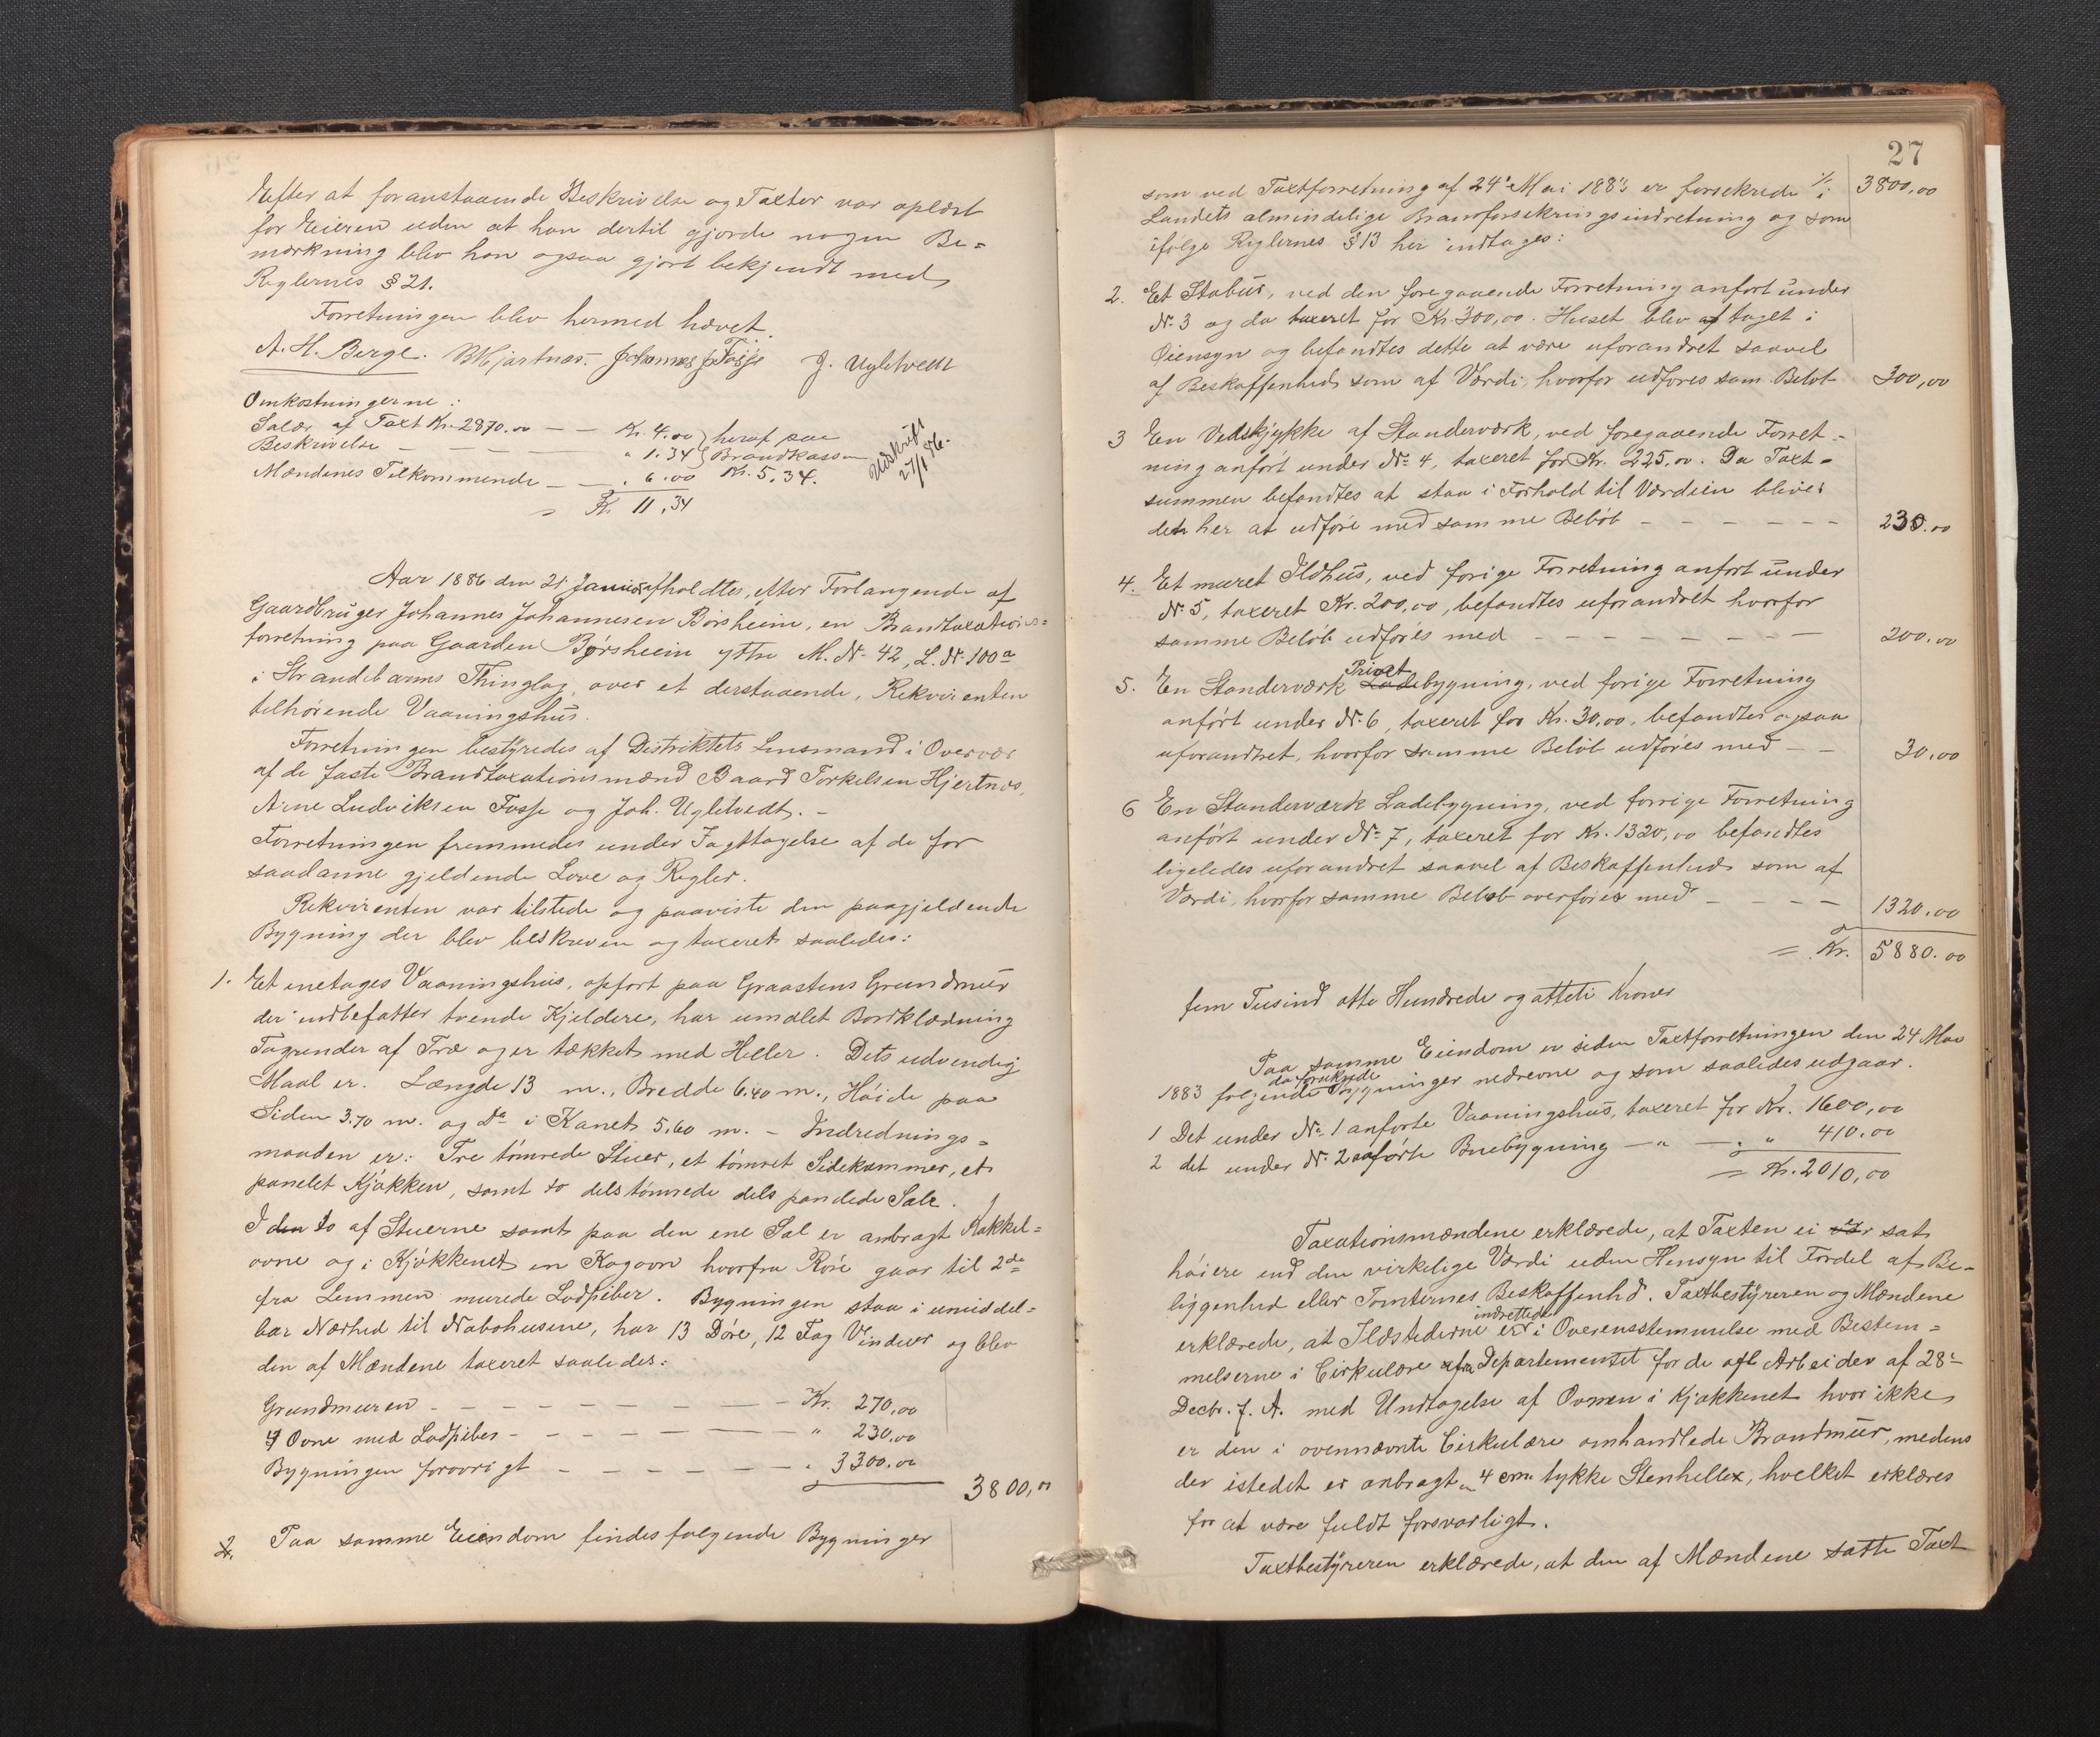 Efter at foranstaaende Beskrivelse og Taxter var oplæst
for Eieren uden at han dertil gjorde nogen Be=
mærkning blev han ogsaa gjort bekjendt med
Reglernes § 21.
Forretningen blev hermed hævet.
A. H. Berge. B Hjartnæs. Johannes J. Fosse J. Ugletvedt
Omkostningerne:
Salær af Taxt Kr. 2870.00 — — Kr. 4.00 } heraf paa
Beskrivelse — — — — — " 1.34 } Brandkassen
Mændenes Tilkommende — — " 6.00 Kr. 5.34.
= Kr. 11,34
Udskrift
27/1 86.
Aar 1886 den 21 Januar afholdtes, efter Forlangende af
Gaardbruger Johannes Johannesen Børsheim, en Brandtaxations=
forretning paa Gaarden Børsheim yttre M. No 42, L. No 100a
i Strandebarms Thinglag, over et derstaaende, Rekvirenten
tilhørende Vaaningshus.
Forretningen bestyredes af Distriktets Lensmand i Overvær
af de faste Brandtaxationsmænd Baard Torkelsen Hjertnæs,
Arne Ludviksen Fosse og Joh. Ugletvedt. —
Forretningen fremmedes under Iagttagelse af de for
saadanne gjeldende Love og Regler.
Rekvirenten var tilstede og paaviste den paagjeldende
Bygning der blev beskreven og taxeret saaledes:
1. Et enetages Vaaningshus, opført paa Graastens Grundmur
der indbefatter tvende Kjeldere, har umalet Bordklædning
Tagrender af Træ og er tækket med Heller. Dets udvendig
Maal er. Længde 13 m., Bredde 6.40 m., Høide paa
Siden 3.70 m. og Do i Kanet 5,60 m. — Indrednings=
maaden er: Tre tømrede Stuer, et tømret Sidekammer, et
panelet Kjøkken, samt to dels tømrede dels panelede Sale.
I den to af Stuerne samt paa den ene Sal er anbragt Kakkel=
ovne og i Kjøkkenet en Kogovn hvorfra Røre gaar til 2de
fra Lemmen murede Lodpiber. Bygningen staa i umiddel=
bar Nærhed til Nabohusene, har 13 Døre, 12 Fag Vinduer og blev
den af Mændene taxeret saaledes:
Grundmuren — — — — — — — — Kr. 270,00
4 Ovne med Lodpiber — — — — — — " 230,00
Bygningen forøvrigt — — — — — — " 3300.00
3800,00
2. Paa samme Eiendom findes følgende Bygninger
27
som ved Taxtforretning af 24' Mai 1883 er forsekrede i 3800,00
Landets almindelige Brandforsekringsindretning og som
ifølge Reglernes § 13 her indtages:
2. Et Stabur, ved den foregaaende Forretning anført under
No 3 og da taxeret for Kr. 300,00. Huset blev af taget i
Øiensyn og befandtes dette at være uforandret saavel
af Beskaffenhed som af Værdi, hvorfor udføres sam. Beløb 300,00
3 En Vedskjykke af Standerværk, ved foregaaende Forret=
ning anført under No 4, taxeret for Kr. 225,00. Da Taxt=
summen befandtes at staa i Forhold til Værdien bliver
det her at udføre med samme Beløb — — — — — — 230.00
4. Et muret Ildhus, ved forige Forretning anført under
No 5, taxeret Kr. 200,00, befandtes uforandret hvorfor
samme Beløb udføres med — — — — — — — 200.00
5. En Standerværk Ladebygning, Privet ved forige Forretning
anført under No 6, taxeret for Kr. 30,00, befandtes ogsaa
uforandret, hvorfor samme Beløb udføres med — — 30.00
6 En Standerværk Ladebygning, ved forrige Forretning
anført under No 7, taxeret for Kr. 1320,00 befandtes
ligeledes uforandret saavel af Beskaffenhed som af
Værdi, hvorfor samme Beløb overføres med — — — — 1320.00
= Kr. 5880.00
fem Tusind otte Hundrede og otteti Kroner
Paa samme Eiendom er siden Taxtforretningen den 24 Mai
1883 følgende da forsekrede Bygninger nedrevne og som saaledes udgaar.
1 Det under No 1 anførte Vaaningshus, taxeret for Kr. 1600,00
2 det under No 2 anførte Buebygning — " — " " 410.00
= Kr. 2010,00
Taxationsmændene erklærede, at Taxten ei er sat
høiere end den virkelige Værdi uden Hensyn til Fordel af Be=
liggenhed eller Tomternes Beskaffenhd. Taxtbestyreren og Mændene
erklærede, at Ildstederne er indrettede i Overensstemmelse med Bestem=
melserne i Cirkulære fra Departementet for de offl Arbeider af 28'
Decbr. f. A. med Undtagelse af Ovnen i Kjøkkenet hvor ikke
er den i ovennævnte Cirkulære omhandlede Brandmur, medens
der istedet er anbragt 4 cm. tykke Stenheller, hvelket erklæres
for at være fuldt forsvarligt.
Taxtbestyreren erklærede, at den af Mændene satte Taxt